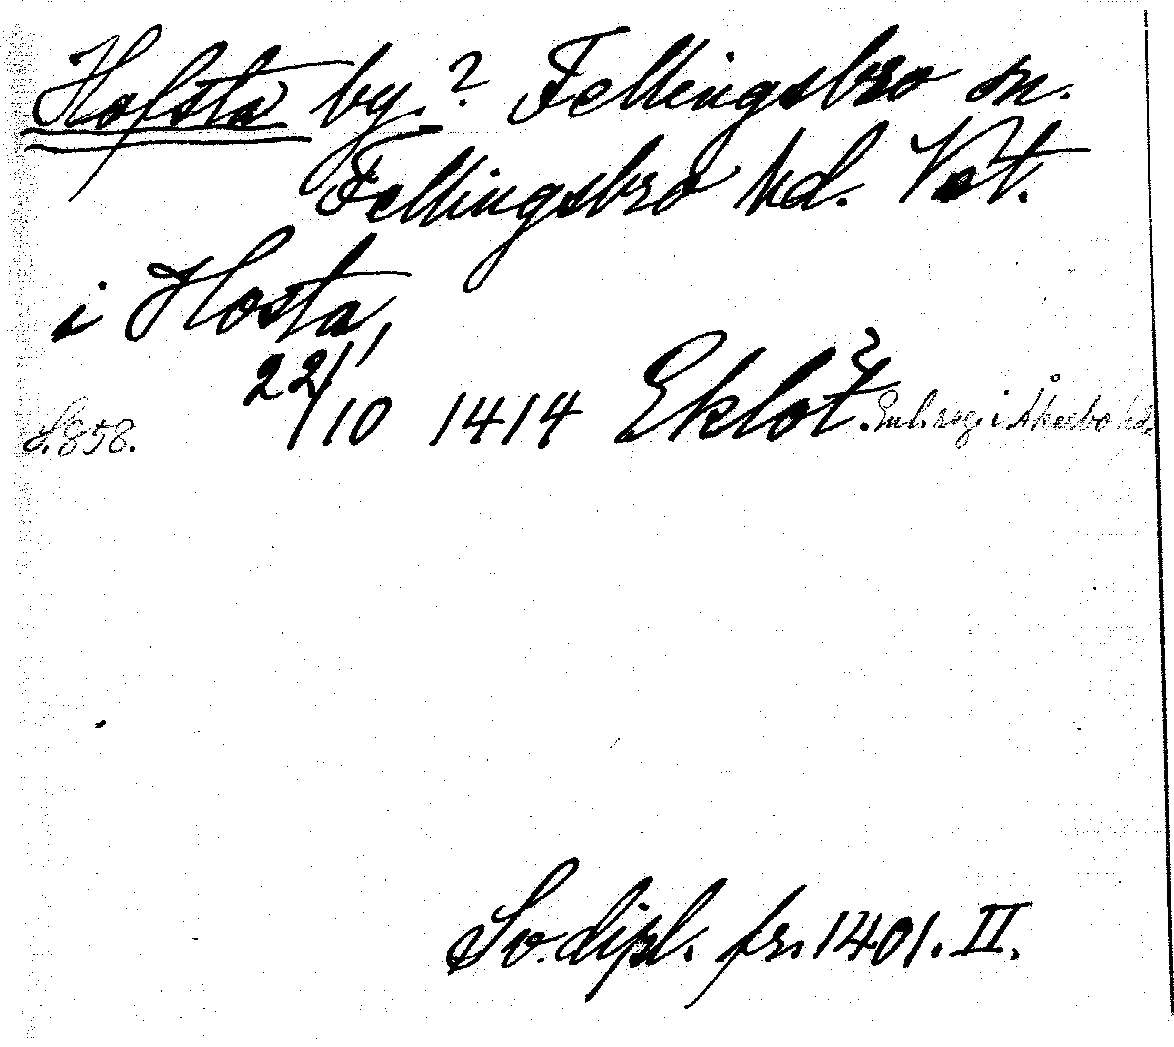 Hofsta by.? Fellingsbro sn.
Fellingsbro hd. Vstm.
i Hosta,
S. 858. 22/10 1414 Eklöt?. Enl. reg. i Åkerbo hd.
Sv. dipl. fr. 1401. II.